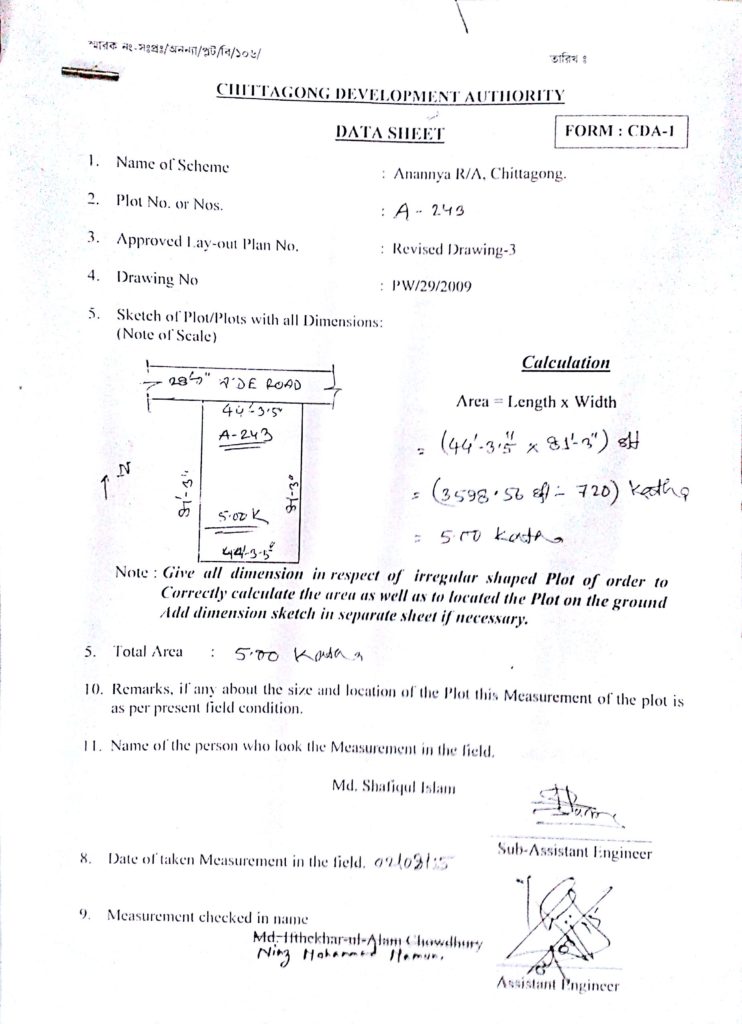 স্মারক নং-সংপ্রঃ/অনন্যা/প্লট/বি/১০৬/
তারিখ ঃ
CHITTAGONG DEVELOPMENT AUTHORITY
DATA SHEET
FORM : CDA-1
1. Name of Scheme : Anannya R/A, Chittagong.
2. Plot No. or Nos. : A - 243
3. Approved Lay-out Plan No. : Revised Drawing-3
4. Drawing No : PW/29/2009
5. Sketch of Plot/Plots with all Dimensions:
(Note of Scale)
WIDE ROAD
44'-3.5"
A-243
N
81'-3"
81'-3"
5.00 K
44'-3.5"
Calculation
Area = Length x Width
= (44'-3.5" x 81'-3") sft
= (3598.56 sft ÷ 720) Katha
= 5.00 Katha
Note : Give all dimension in respect of irregular shaped Plot of order to
Correctly calculate the area as well as to located the Plot on the ground
Add dimension sketch in separate sheet if necessary.
5. Total Area : 5.00 Katha
10. Remarks, if any about the size and location of the Plot this Measurement of the plot is
as per present field condition.
11. Name of the person who look the Measurement in the field.
Md. Shafiqul Islam
Sub-Assistant Engineer
8. Date of taken Measurement in the field.
9. Measurement checked in name
Md. Ifthekhar-ul-Alam Chowdhury
Mohammad Mamun.
Assistant Engineer